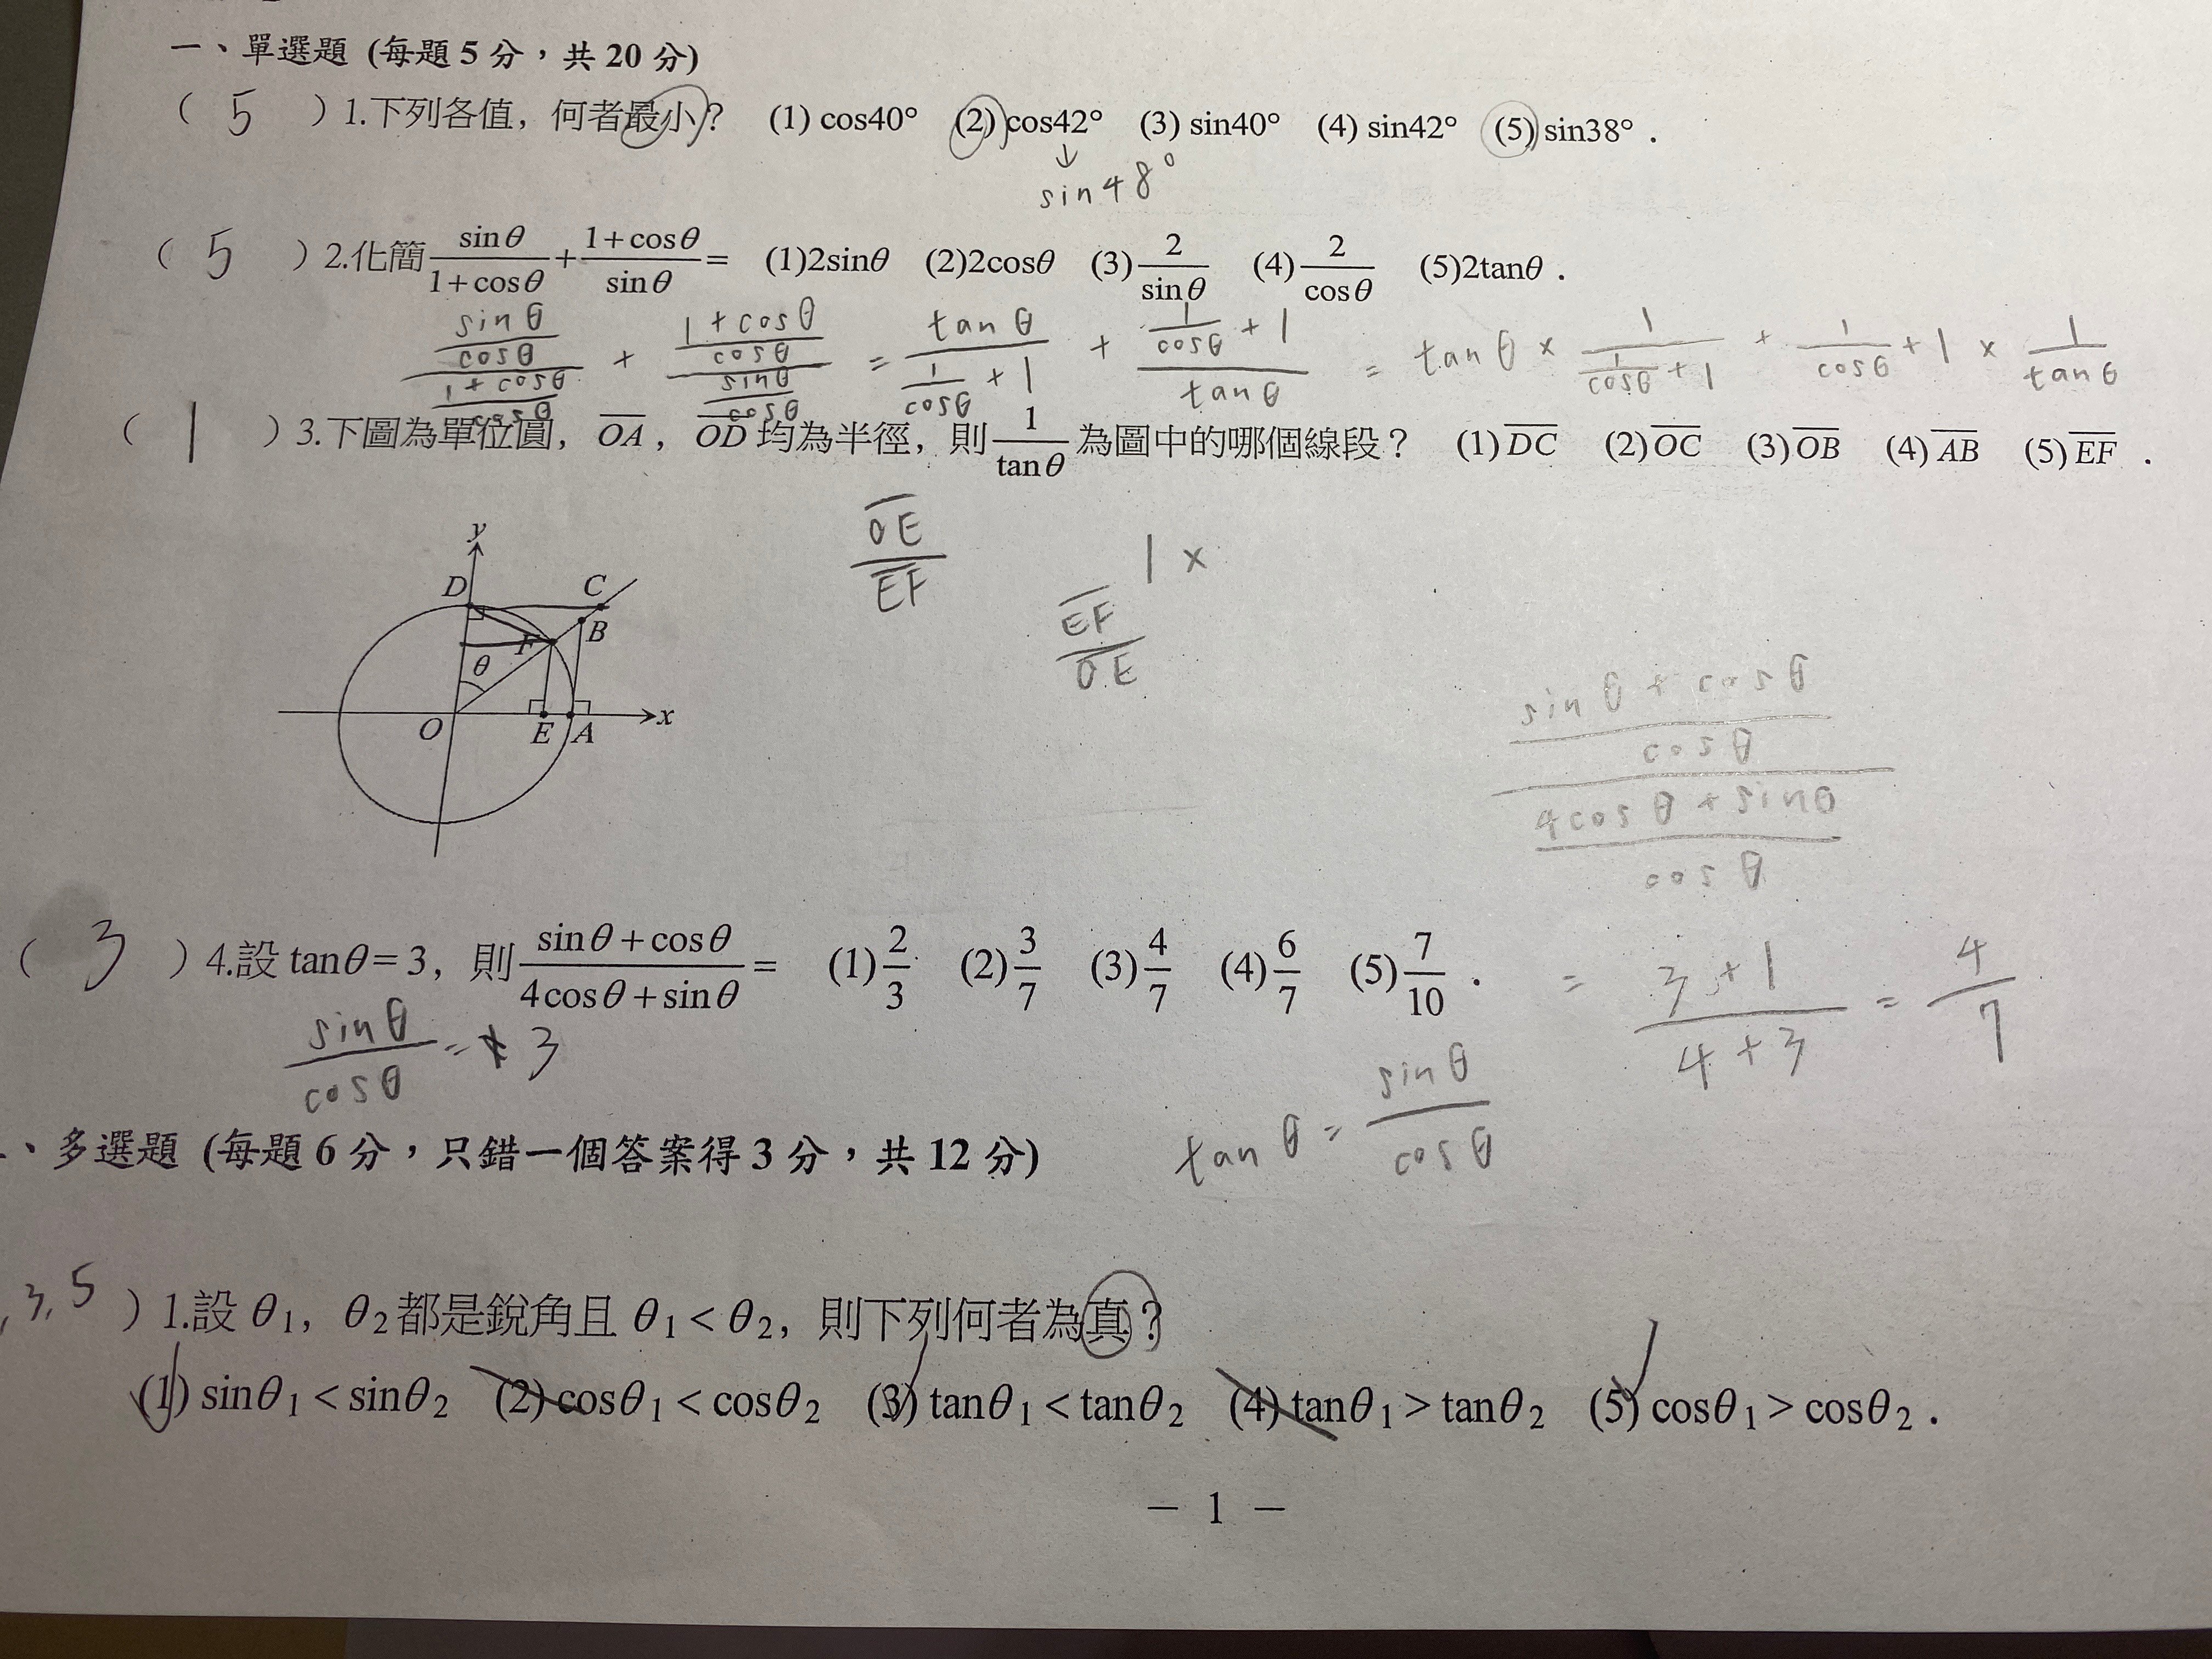 一、單選題 (每題 5 分，共 20 分)
( 5 ) 1.下列各值，何者最小？ (1) cos40° (2) cos42° (3) sin40° (4) sin42° (5) sin38°．
↓
sin48°
( 5 ) 2.化簡 sinθ/(1+cosθ) + (1+cosθ)/sinθ = (1)2sinθ (2)2cosθ (3) 2/sinθ (4) 2/cosθ (5)2tanθ．
(sinθ/cosθ)/((1+cosθ)/cosθ) + ((1+cosθ)/cosθ)/(sinθ/cosθ) = tanθ/(1/cosθ + 1) + (1/cosθ + 1)/tanθ = tanθ × 1/(1/cosθ + 1) + 1/cosθ + 1 × 1/tanθ
( 1 ) 3.下圖為單位圓，OA，OD 均為半徑，則 1/tanθ 為圖中的哪個線段？ (1) DC (2) OC (3) OB (4) AB (5) EF．
OE/EF
1 ×
EF/OE
y
D C
B
F
θ
O E A x
((sinθ+cosθ)/cosθ)/((4cosθ+sinθ)/cosθ)
( 3 ) 4.設 tanθ=3，則 (sinθ+cosθ)/(4cosθ+sinθ) = (1) 2/3 (2) 3/7 (3) 4/7 (4) 6/7 (5) 7/10． = (3+1)/(4+3) = 4/7
sinθ/cosθ = 3
tanθ = sinθ/cosθ
、多選題 (每題 6 分，只錯一個答案得 3 分，共 12 分)
, 3, 5 ) 1.設 θ1，θ2 都是銳角且 θ1 < θ2，則下列何者為真？
(1) sinθ1 < sinθ2 (2) cosθ1 < cosθ2 (3) tanθ1 < tanθ2 (4) tanθ1 > tanθ2 (5) cosθ1 > cosθ2．
－ 1 －